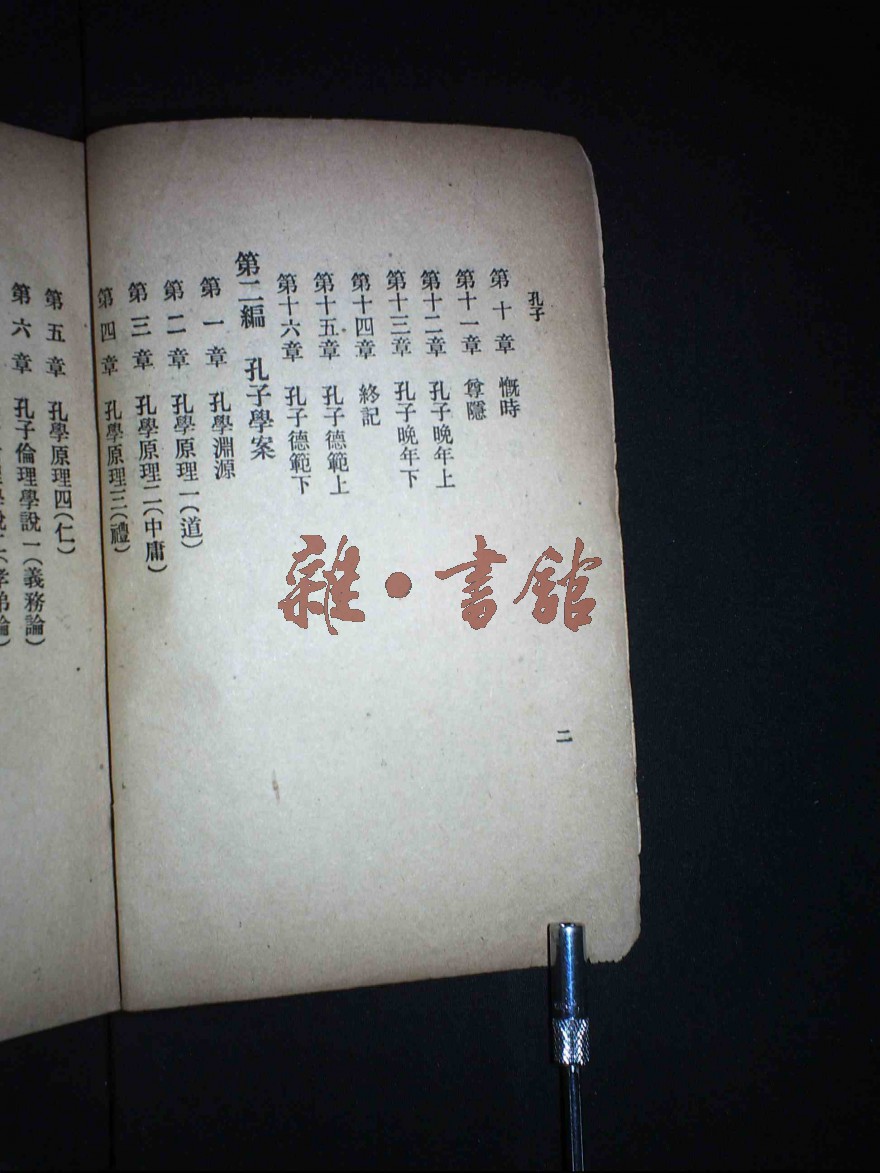 孔子
第十章 慨時
第十一章 尊隱
第十二章 孔子晚年上
第十三章 孔子晚年下
第十四章 終記
第十五章 孔子德範上
第十六章 孔子德範下
第二編 孔子學案
第一章 孔學淵源
第二章 孔學原理一(道)
第三章 孔學原理二(中庸)
第四章 孔學原理三(禮)
二
第五章 孔學原理四(仁)
第六章 孔子倫理學說一(義務論)
雜·書館